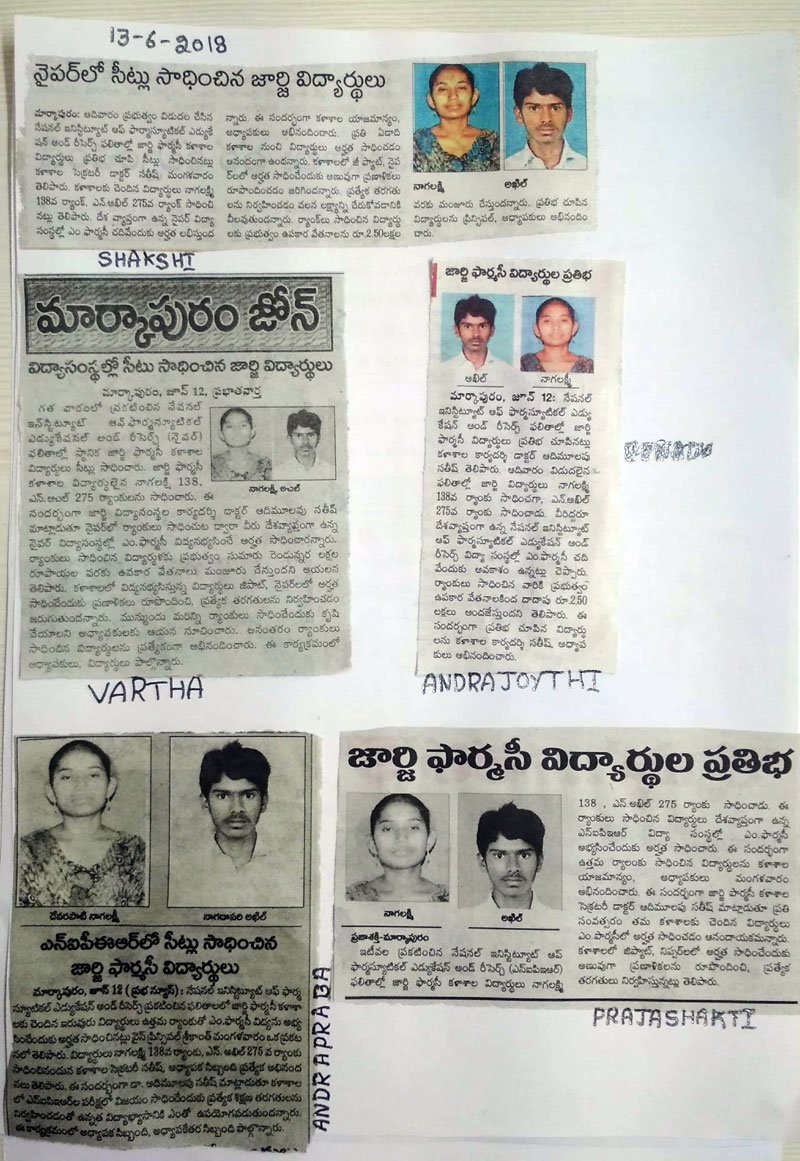 13-6-2018
నైపర్‌లో సీట్లు సాధించిన జార్జి విద్యార్థులు
మార్కాపురం: ఆదివారం ప్రభుత్వం విడుదల చేసిన
నేషనల్ ఇనిస్టిట్యూట్ ఆఫ్ ఫార్మాస్యూటికల్ ఎడ్యుకే
షన్ అండ్ రీసెర్చ్ ఫలితాల్లో జార్జి ఫార్మసీ కళాశాల
విద్యార్థులు ప్రతిభ చూపి సీట్లు సాధించినట్లు
కళాశాల సెక్రటరీ డాక్టర్ సతీష్ మంగళవారం
తెలిపారు. కళాశాలకు చెందిన విద్యార్థులు నాగలక్ష్మి
138వ ర్యాంక్, ఎన్.అఖిల్ 275వ ర్యాంక్ సాధించి
నట్లు తెలిపారు. దేశ వ్యాప్తంగా ఉన్న నైపర్ విద్యా
సంస్థల్లో ఎం ఫార్మసీ చదివేందుకు అర్హత లభిస్తుంద
న్నారు. ఈ సందర్భంగా కళాశాల యాజమాన్యం,
అధ్యాపకులు అభినందించారు. ప్రతి ఏడాది
కళాశాల నుంచి విద్యార్థులు అర్హత సాధించడం
ఆనందంగా ఉందన్నారు. కళాశాలలో జీ ప్యాట్, నైప
ర్‌లలో అర్హత సాధించేందుకు అణువుగా ప్రణాళికలు
రూపొందించడం జరిగిందన్నారు. ప్రత్యేక తరగతు
లను నిర్వహించడం వలన లక్ష్యాన్ని చేరుకోవడానికి
వీలవుతుందన్నారు. ర్యాంక్‌లు సాధించిన విద్యార్థు
లకు ప్రభుత్వం ఉపకార వేతనాలను రూ.2.50లక్షల
నాగలక్ష్మి
అఖిల్
వరకు మంజూరు చేస్తుందన్నారు. ప్రతిభ చూపిన
విద్యార్థులను ప్రిన్సిపల్, అధ్యాపకులు అభినందిం
చారు.
SHAKSHI
మార్కాపురం జోన్
విద్యాసంస్థల్లో సీటు సాధించిన జార్జి విద్యార్థులు
మార్కాపురం, జూన్ 12, ప్రభాతవార్త
గత వారంలో ప్రకటించిన నేషనల్
ఇన్‌స్టిట్యూట్ ఆవ్ ఫార్మస్యూటికల్
ఎడ్యుకేషనల్ అండ్ రీసెర్చ్ (నైపర్)
ఫలితాల్లో స్థానిక జార్జి ఫార్మసీ కళాశాల
విద్యార్థులు సీట్లు సాధించారు. జార్జి ఫార్మసీ
కళాశాల విద్యార్థులైన నాగలక్ష్మి 138,
ఎన్.అఖిల్ 275 ర్యాంకులను సాధించారు. ఈ
నాగలక్ష్మి, అఖిల్
సందర్భంగా జార్జి విద్యాసంస్థల కార్యదర్శి డాక్టర్ ఆదిమూలపు సతీష్
మాట్లాడుతూ నైపర్‌లో ర్యాంకులు సాధించుట ద్వారా వీరు దేశవ్యాప్తంగా ఉన్న
నైపర్ విద్యాసంస్థల్లో ఎం.ఫార్మసీ విద్యనభ్యసించే అర్హత సాధించారన్నారు.
ర్యాంకులు సాధించిన విద్యార్థులకు ప్రభుత్వం సుమారు రెండున్నర లక్షల
రూపాయల వరకు ఉపకార వేతనాలు మంజూరు చేస్తుందని ఆయన
తెలిపారు. కళాశాలలో విద్యనభ్యసిస్తున్న విద్యార్థులు జిపాట్, నైపర్‌లలో అర్హత
సాధించేందుకు ప్రణాళికలు రూపొందించి, ప్రత్యేక తరగతులను నిర్వహించడం
జరుగుతుందన్నారు. మున్ముందు మరిన్ని ర్యాంకులు సాధించేందుకు కృషి
చేయాలని అధ్యాపకులకు ఆయన సూచించారు. అనంతరం ర్యాంకులు
సాధించిన విద్యార్థులను ప్రత్యేకంగా అభినందించారు. ఈ కార్యక్రమంలో
అధ్యాపకులు, విద్యార్థులు పాల్గొన్నారు.
VARTHA
జార్జి ఫార్మసీ విద్యార్థుల ప్రతిభ
అఖిల్
నాగలక్ష్మి
మార్కాపురం, జూన్ 12: నేషనల్
ఇనిస్టిట్యూట్ ఆఫ్ ఫార్మస్యూటికల్ ఎడ్యు
కేషన్ అండ్ రీసెర్చ్ ఫలితాల్లో జార్జి
ఫార్మసీ విద్యార్థులు ప్రతిభ చూపినట్లు
కళాశాల కార్యదర్శి డాక్టర్ ఆదిమూలపు
సతీష్ తెలిపారు. ఆదివారం విడుదలైన
ఫలితాల్లో విద్యార్థులు నాగలక్ష్మి
138వ ర్యాంకు సాధించగా, ఎన్.అఖిల్
275వ ర్యాంకు సాధించాడు. వీరిద్దరూ
దేశవ్యాప్తంగా ఉన్న నేషనల్ ఇనిస్టిట్యూట్
ఆఫ్ ఫార్మస్యూటికల్ ఎడ్యుకేషన్ అండ్
రీసెర్చ్ విద్యా సంస్థల్లో ఎం.ఫార్మసీ చది
వేందుకు అవకాశం ఉన్నట్లు చెప్పారు.
ర్యాంకులు సాధించిన వారికి ప్రభుత్వం
ఉపకార వేతనాలకింద దాదాపు రూ.2.50
లక్షలు అందజేస్తుందని తెలిపారు. ఈ
సందర్భంగా ప్రతిభ చూపిన విద్యార్థు
లను కళాశాల కార్యదర్శి సతీష్, అధ్యాప
కులు అభినందించారు.
ANDRAJOYTHI
దేవరపాటి నాగలక్ష్మి
నాగదాసరి అఖిల్
ఎన్ఐపీఈఆర్‌లో సీట్లు సాధించిన
జార్జి ఫార్మసీ విద్యార్థులు
మార్కాపురం, జూన్ 12 (ప్రభ న్యూస్): నేషనల్ ఇనిస్టిట్యూట్ ఆఫ్ ఫార్మ
స్యూటికల్ ఎడ్యుకేషన్ అండ్ రీసెర్చ్ ప్రకటించిన ఫలితాలలో జార్జి ఫార్మసీ కళాశా
లకు చెందిన ఇరువురు విద్యార్థులు ఉత్తమ ర్యాంకుతో ఎం.ఫార్మసీ విద్యను అభ్య
సించేందుకు అర్హత సాధించినట్లు వైస్ ప్రిన్సిపల్ శ్రీకాంత్ మంగళవారం ఒక ప్రకట
నలో తెలిపారు. విద్యార్థులు నాగలక్ష్మి 138వ ర్యాంకు, ఎన్. అఖిల్ 275 వ ర్యాంకు
సాధించినందున కళాశాల సెక్రెటరీ సతీష్, అధ్యాపక సిబ్బంది ప్రత్యేక అభినంద
నలు తెలిపారు. ఈ సందర్భంగా డా. ఆదిమూలపు సతీష్ మాట్లాడుతూ కళాశాల
లో ఎన్ఐపిఈఆర్‌ల పరీక్షలో విజయం సాధించేందుకు ప్రత్యేక శిక్షణ తరగతులను
నిర్వహించడంతో ఉన్నత విద్యాభ్యాసానికి ఎంతో ఉపయోగపడుతుందన్నారు.
ఈ కార్యక్రమంలో అధ్యాపక సిబ్బంది, అధ్యాపకేతర సిబ్బంది పాల్గొన్నారు.
ANDRAPRABA
జార్జి ఫార్మసీ విద్యార్థుల ప్రతిభ
నాగలక్ష్మి
అఖిల్
ప్రజాశక్తి-మార్కాపురం
ఇటీవల ప్రకటించిన నేషనల్ ఇనిస్టిట్యూట్ ఆప్
ఫార్మస్యూటికల్ ఎడ్యుకేషన్ అండ్ రీసెర్చ్ (ఎన్ఐపిఇఆర్)
ఫలితాల్లో జార్జి ఫార్మసి కళాశాల విద్యార్థులు నాగలక్ష్మి
138 , ఎన్.అఖిల్ 275 ర్యాంకు సాధించాడు. ఈ
ర్యాంకులు సాధించిన విద్యార్థులు దేశవ్యాప్తంగా ఉన్న
ఎన్ఐపిఇఆర్ విద్యా సంస్థల్లో ఎం.ఫార్మసీ
అభ్యసించేందుకు అర్హత సాధించారు. ఈ సందర్భంగా
ఉత్తమ ర్యాలంకు సాధించిన విద్యార్థులను కళాశాల
యాజమాన్యం, అధ్యాపకులు మంగళవారం
అభినందించారు. ఈ సందర్భంగా జార్జి ఫార్మసీ కళాశాల
సెక్రటరీ డాక్టర్ ఆదిమూలపు సతీష్ మాట్లాడుతూ ప్రతి
సంవత్సరం తమ కళాశాలకు చెందిన విద్యార్థులు
ఎం.ఫార్మసీలో అర్హత సాధించడం ఆనందాయకమన్నారు.
కళాశాలలో జిప్యాట్, నిప్పర్‌లలో అర్హత సాధించేందుకు
అణువుగా ప్రణాళికలను రూపొందించి, ప్రత్యేక
తరగతులు నిర్వహిస్తున్నట్లు తెలిపారు.
PRAJASHAKTI